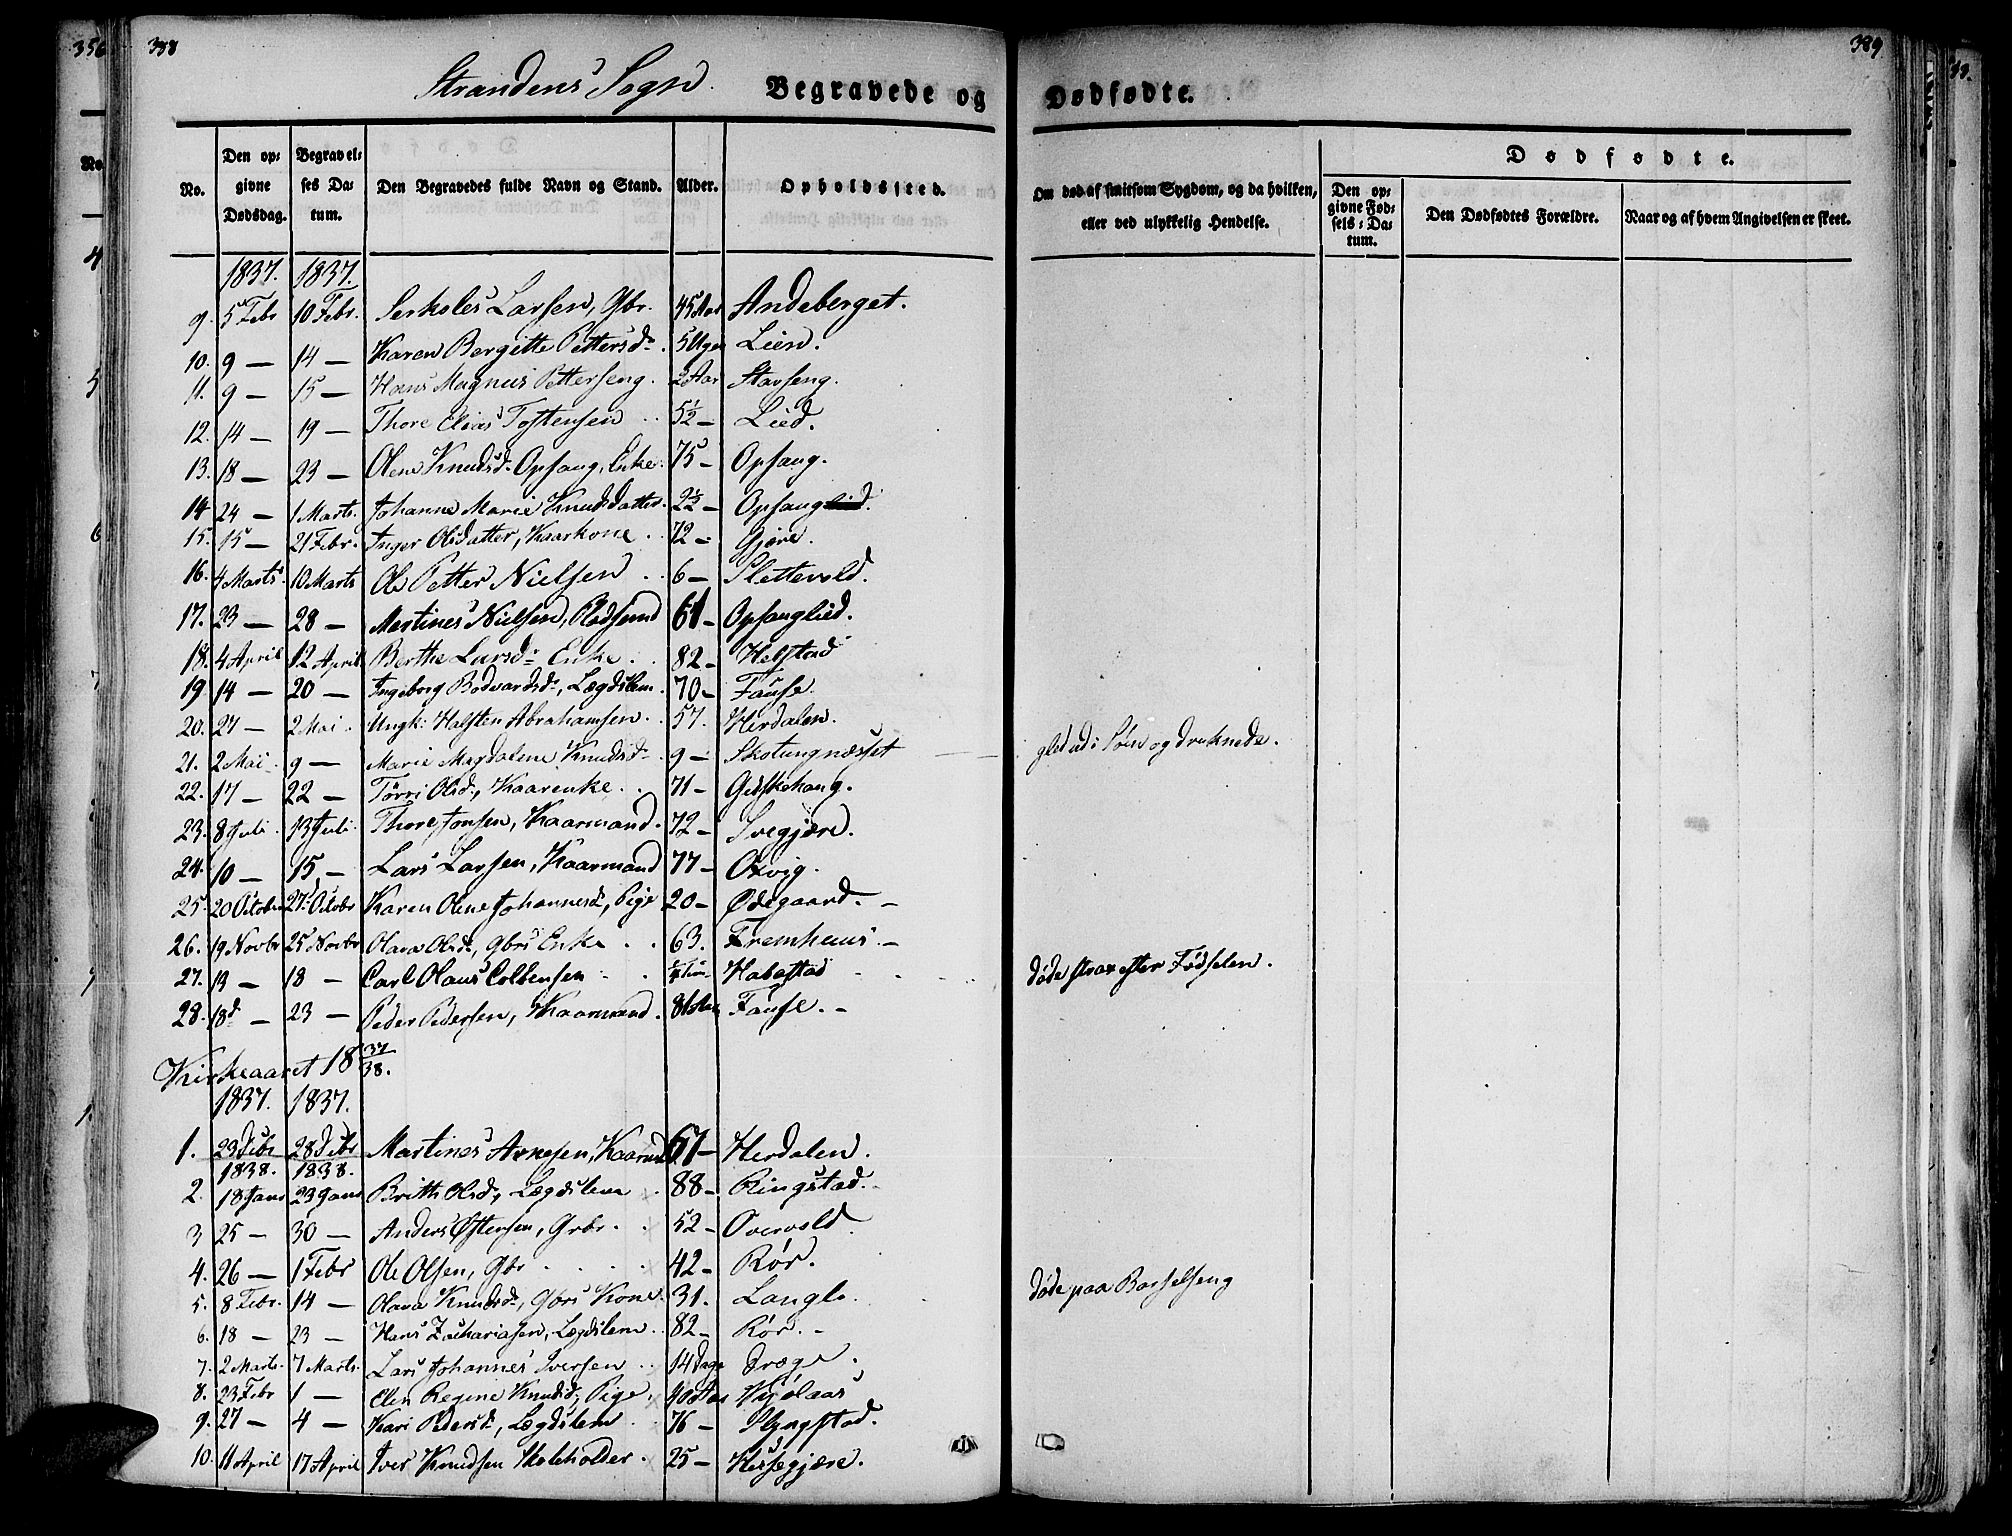 356
388
389
Strandens Sogn.
Begravede og
Dødfødte.
No.
Den op-
givne
Dødsdag.
Begravel-
ses Da-
tum.
Den Begravedes fulde Navn og Stand.
Alder.
Opholdssted.
Om død af smitsom Sygdom, og da hvilken,
eller ved ulykkelig Hendelse.
Dødfødte.
Den op-
givne Fød-
sels-Da-
tum.
Den Dødfødtes Forældre.
Naar og af hvem Angivelsen er skeet.
1837. 1837.
9. 5 Febr 10 Febr. Larsen, Gbr. 45 Aar Andeberget.
10. 9 — 14 — Karen Bergitte Pettersd. 5 Uger Lien.
11. 9 — 15 — Hans Magnus Petterseng. 2 Aar Stavseng.
12. 14 — 19 — Thore Elias Tostensen 5½ — Lied.
13. 18 — 23 — Olene Knudsd. Opsang, Enke. 75 — Opsang.
14 24 — 1 Marts. Johanne Marie Knudsdatter. 2½ — Opsang
15. 15 — 21 Febr. Inger Olsdatter, Kaarkone 72 — Gjære.
16. 4 Marts. 10 Marts Ole Petter Nielsen 6 — Slettevold.
17. 23 — 28 — Martines Nielsen, 61 — Opsanglied.
18. 4 April 12 April Berthe Larsd. Enke. 82 — Helstad
19. 14 — 20 — Ingeborg Bodvardsd., Lægdslem. 70 — Fause.
20. 27 — 2 Mai Ungk: Halsten Abrahamsen 57. Herdalen.
21. 2 Mai 9 — Marie Magdalene Knudsd. 9 — Skotungnæsset gled ud i Søen og druknede.
22. 17 — 22 — Tørri Olsd., Kaarenke. 71 — Geiskehaug.
23. 8 Juli. 13 Juli. Thore Jonsen, Kaarmand. 72 — Svegjære.
24. 10 — 15 — Lars Larsen, Kaarmand 77 — Oxvig.
25. 20 Octobr 27 Octobr Karen Olene Johannesd., Pige 20 — Ødegaard. —
26. 19 Novbr 25 Novbr Olava Olsd., Gbrs Enke 63. Fremhuus. —
27. 13 — 18 — Carl Olaus Colbensen Habostad døde strax efter Fødselen.
28. 18d — 23 — Peder Pedersen, Kaarmand. 81 Aar Fause. —
Kirkeaaret 18 37/38.
1837. 1837.
1. 23 Debr 28 Debr Martines Arnesen, Kaarmd 67 — Herdalen.
1838. 1838.
2. 18 Janr 23 Janr Brith Olsd., Lægdslem 88 — Ringstad.
3 25 — 30 — Anders Østensen, Grbr. 52 — Overvold
4. 26 — 1 Febr Ole Olsen, Gbr 42 — Rør.
5. 8 Febr. 14 — Olava Knudsd., Gbrs Kone. 31. Langlo. døde paa Barselseng
6. 18 — 23 — Hans Zachariasen, Lægdslem 82 — Rør. —
7. 2 Marts. 7 Marts. Lars Johannes Iversen 14 Dage Dræge.
8. 23 Febr 1 — Elen Regine Knudsd., Pige, 40 Aar
9. 27 — 4 — Kari Pedersd., Lægdslem 76 — Slyngstad.
10. 11 April 17 April Iver Knudsen Skoleholder. 25 — Hessegjære.